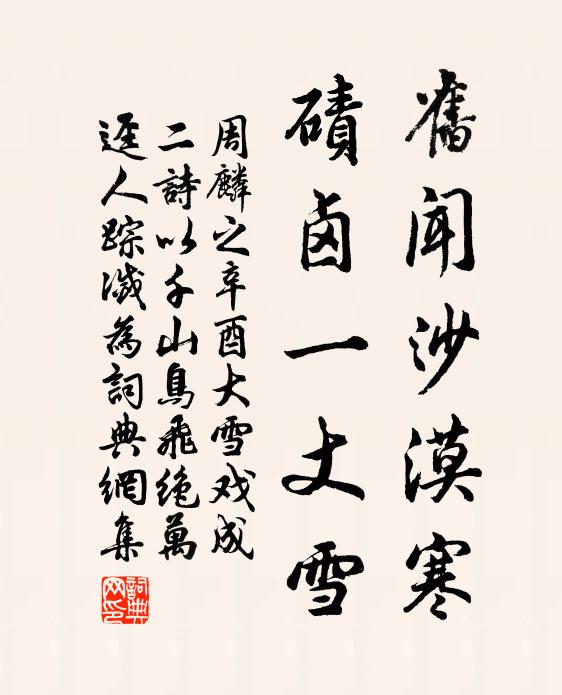 舊聞沙漠寒
磧鹵一丈雪
周麟之辛酉大雪戏成
二詩以千山鳥飛絶萬
逕人踪滅為詞典網集
詞典
网印